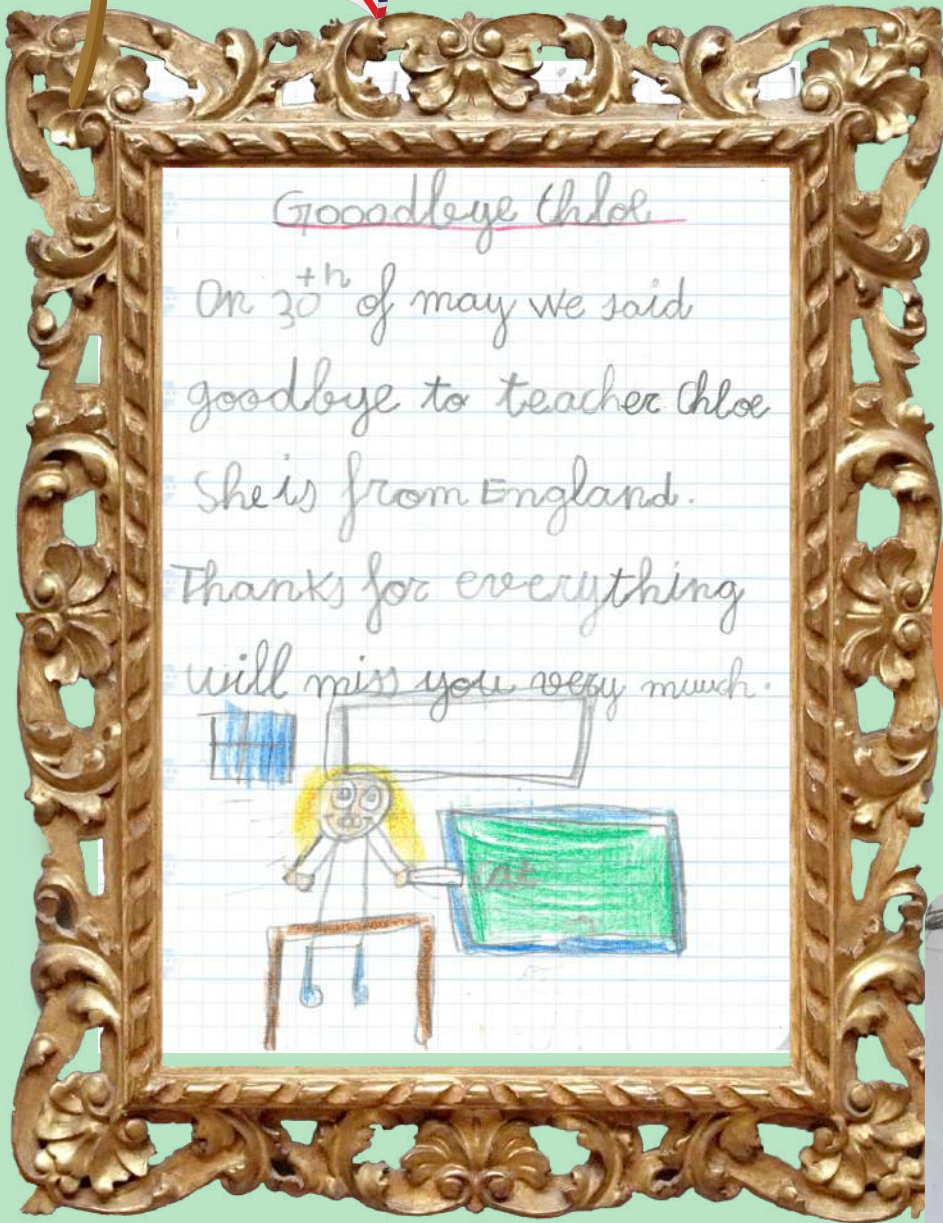 Gooodbye Chloe
On 30th of may we said
goodbye to teacher Chloe
She is from England.
Thanks for everything
will miss you very muuch.
cat